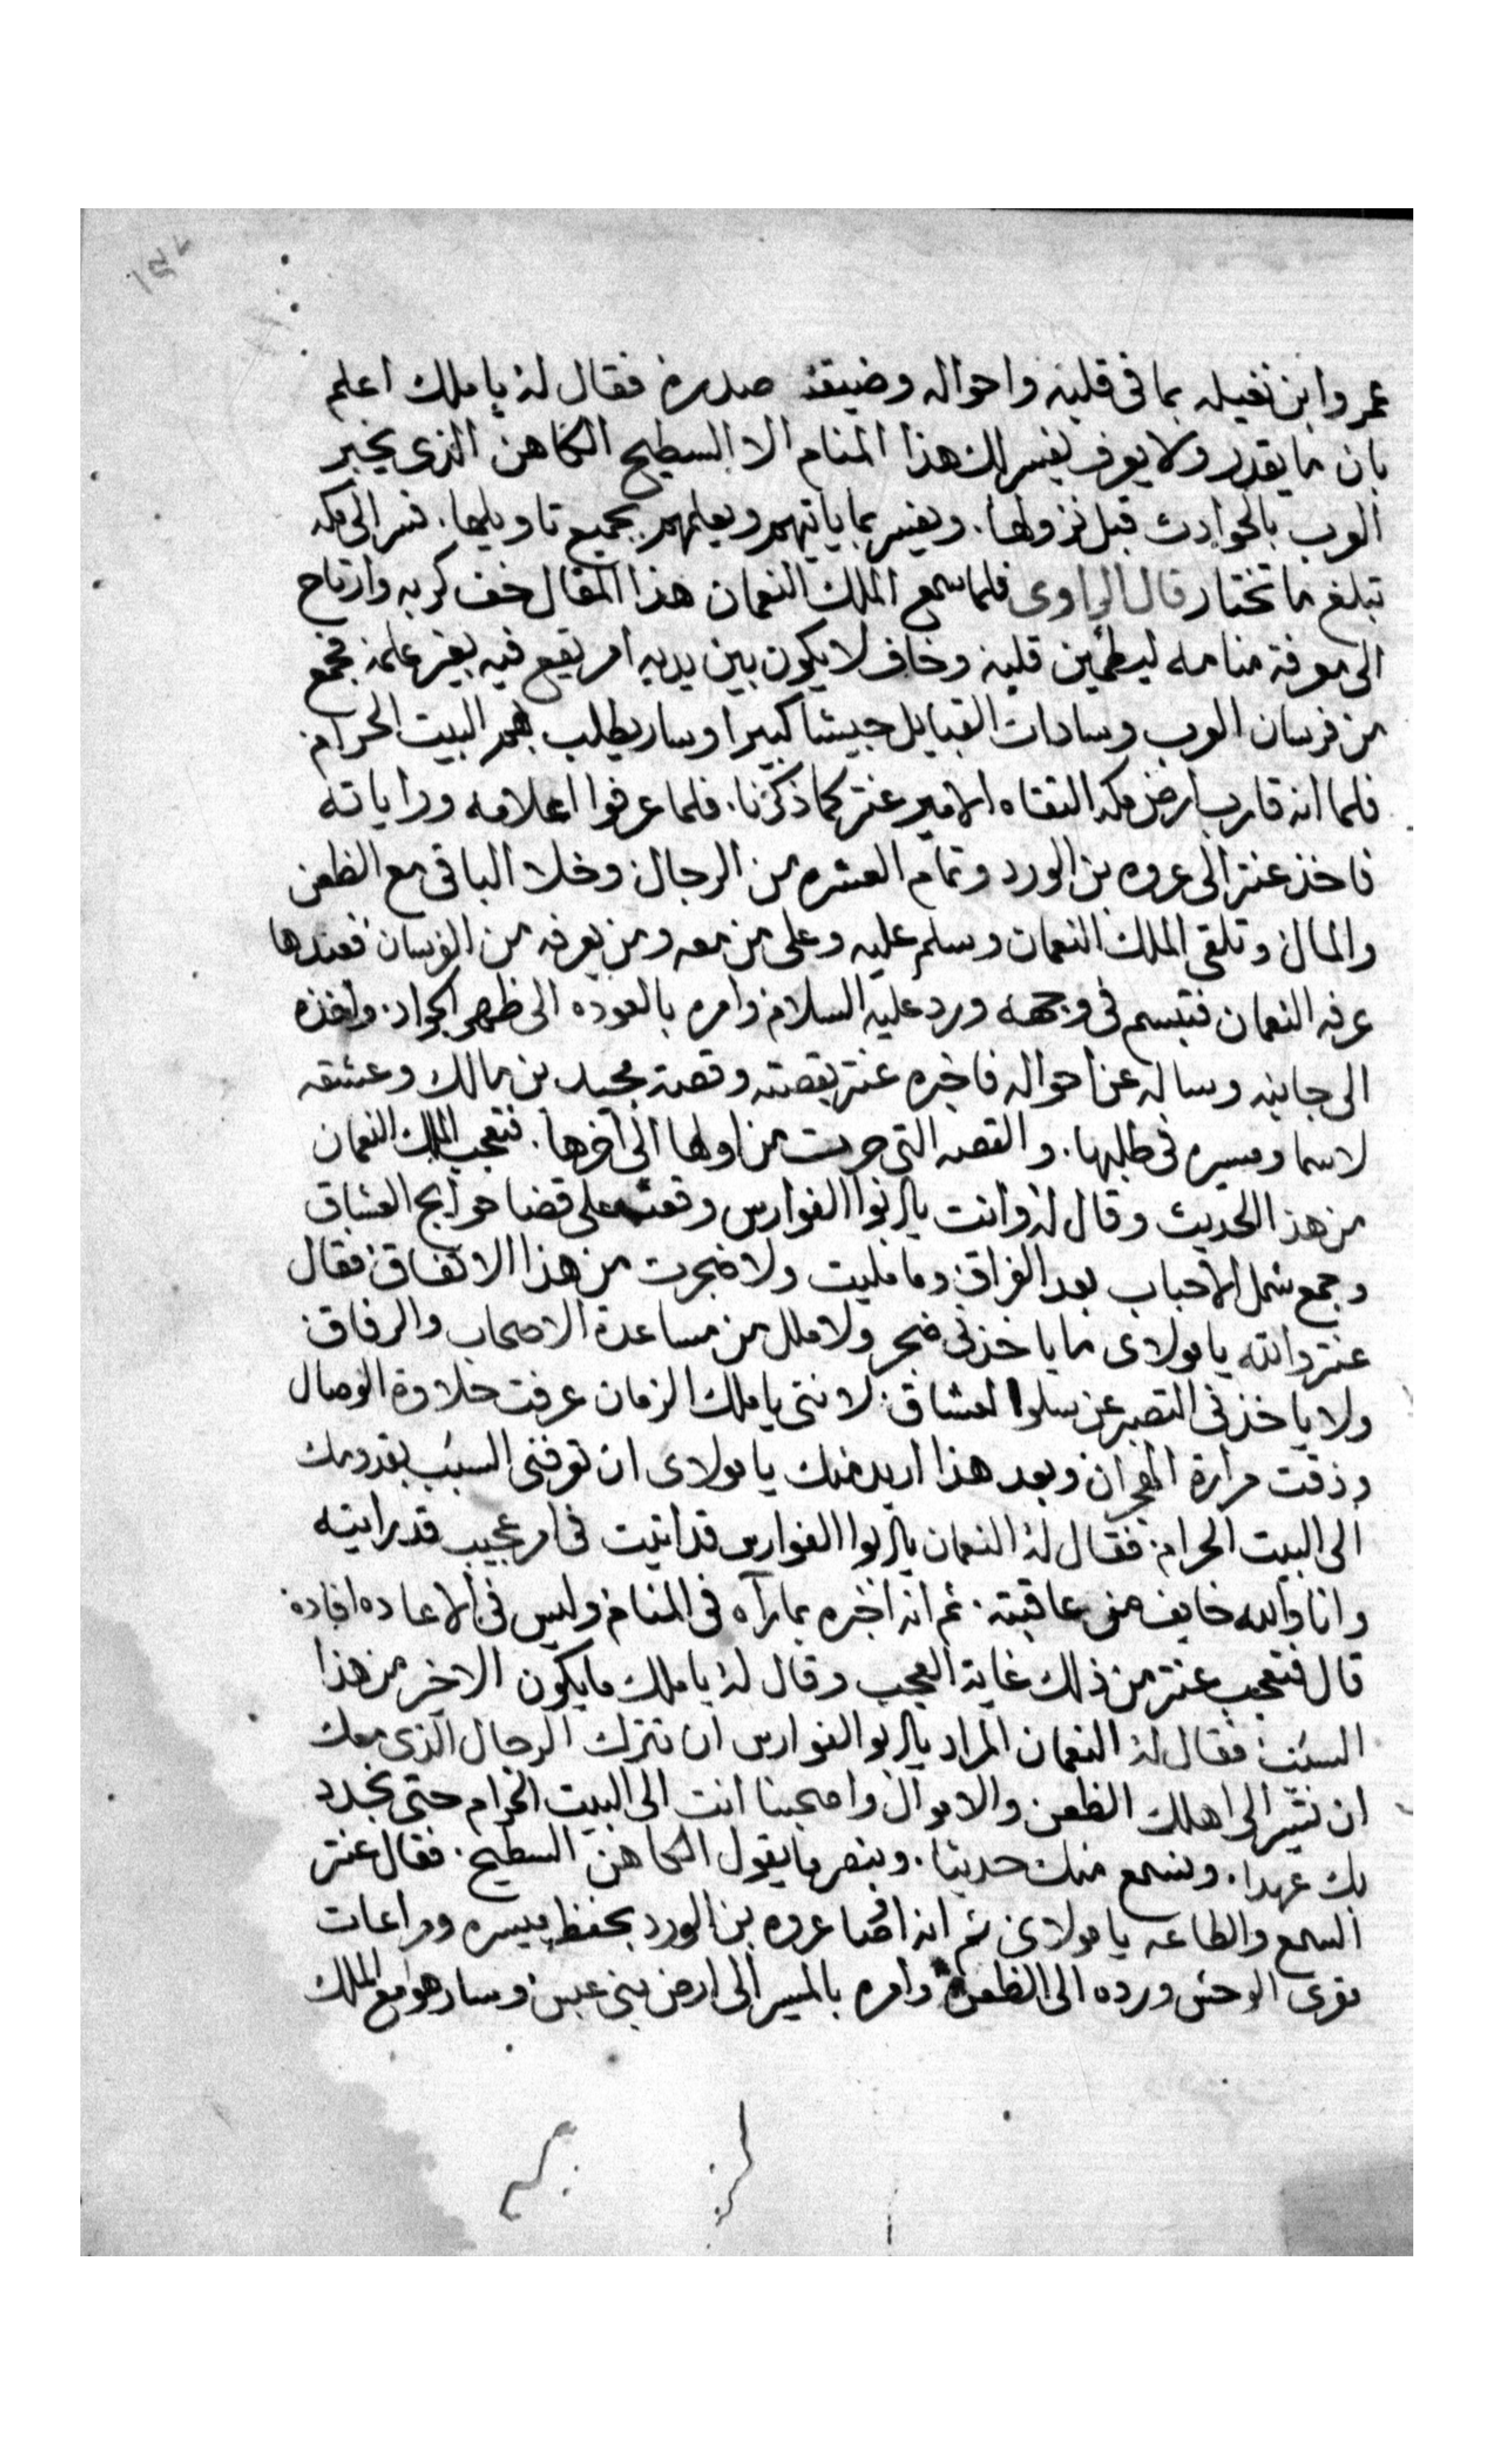 عمرو ابن نفيله بما فى قلبه واحواله وضيقة صدره فقال له يا ملك اعلم
بان ما يقدر ولا يعرف يفسر لك هذا المنام الا السطيح الكاهن الذى يخبر
العرب بالحوادث قبل نزولها. ويفسر بما ياتيهم ويعلمهم بجميع تاويلها. فسر الى مكه
تبلغ ما تختار قال الراوى فلما سمع الملك النعمان هذا المقال خف كربه وارتاح
الى معرفة منامه ليطمين قلبه وخاف لا يكون بين يديه امر يقع فيه بغير علمه فجمع
من فرسان العرب وسادات القبايل جيشا كبيرا وسار يطلب بهم البيت الحرام
فلما انه قارب ارض مكه التقاه الامير عنتر كما ذكرنا. فلما عرفوا اعلامه وراياته
فاخذ عنتر الى عروه بن الورد وتمام العشره من الرجال وخلا الباقى مع الظعن
والمال وتلقى الملك النعمان وسلم عليه وعلى من معه ومن يعرفه من الفرسان فعندها
عرفه النعمان فتبسم فى وجهه ورد عليه السلام وامره بالعوده الى ظهر الجواد. واخذه
الى جانبه وساله عن احواله فاخبره عنتر بقصته وقصة مجيد بن مالك وعشقه
لاسما ومسيره فى طلبها. والقصه التى جرت من اولها الى آخرها. فتعجب الملك النعمان
من هذا الحديث وقال له وانت يا ابوا الفوارس وقعت على قضا حوايج العشاق
وجمع شمل الاحباب بعد الفراق وما مليت ولا ضجرت من هذا الاتفاق فقال
عنتر والله يا مولاى ما ياخذنى ضجر ولا ملل من مساعدة الاصحاب والرفاق
ولا ياخذنى التصبر عن سلوا العشاق لاننى يا ملك الزمان عرفت حلاوة الوصال
وذقت مرارة الهجران وبعد هذا اريد منك يا مولاى ان تعرفنى السبب بقدومك
الى البيت الحرام فقال له النعمان يا ابوا الفوارس قد اتيت فى امر عجيب قد رايته
وانا والله خايف من عاقبته. ثم انه اخبره بما رآه فى المنام وليس فى الاعاده افاده
قال فتعجب عنتر من ذلك غاية العجب وقال له يا ملك ما يكون الاخر من هذا
السبب فقال له النعمان المراد يا ابو الفوارس ان تترك الرجال الذى معك
ان تسير الى اهلك الظعن والاموال واصحبنا انت الى البيت الحرام حتى نجدد
بك عهدا. ونسمع منك حديثا. وننصر ما يقول الكاهن السطيح. فقال عنتر
السمع والطاعه يا مولاى ثم انه اوصا عروه بن الورد بحفظ ميسره ومراعات
مقرى الوحش ورده الى الظعن وامره بالمسير الى ارض بنى عبس وسار هو مع الملك